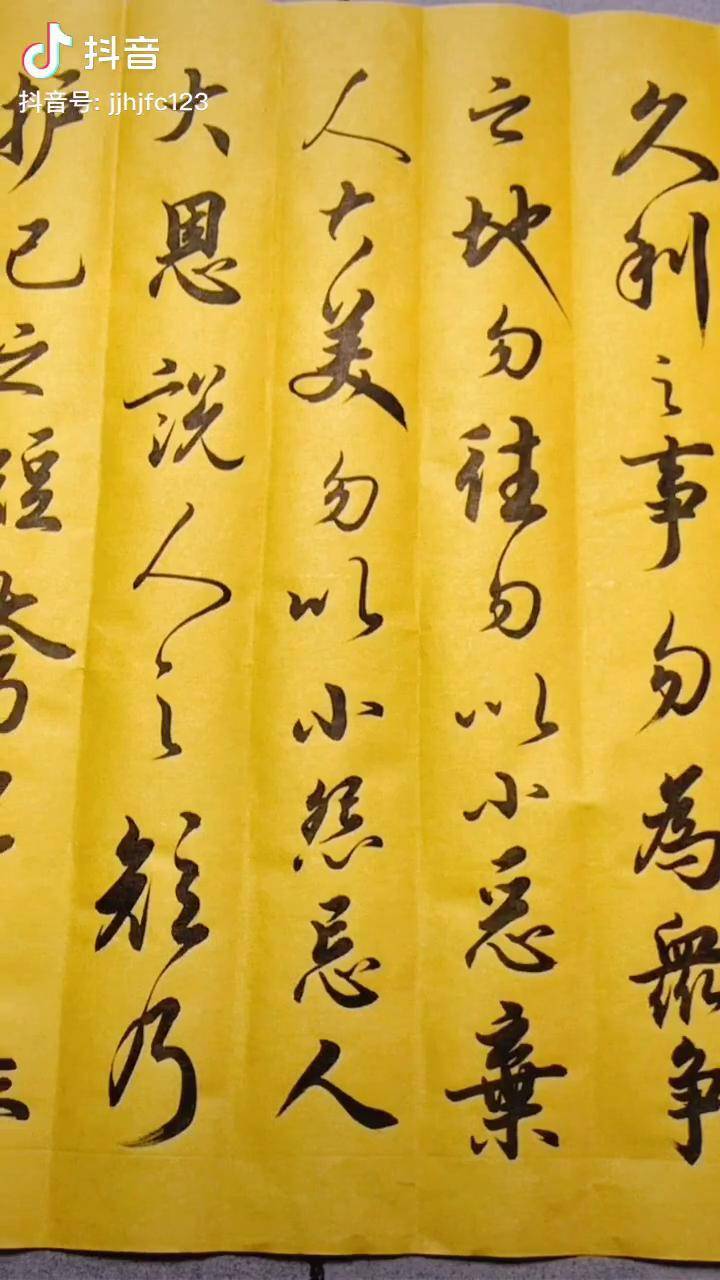 抖音
抖音号: jjhjfc123
久利之事勿為衆争
之地勿往勿以小惡棄
人大美勿以小怨忌人
大恩説人之短乃
护己之短夸己